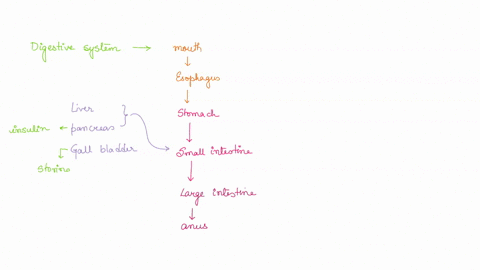 Digestive system → mouth
Esophagus
Liver
Stomach
insulin ← pancreas
Gall bladder
Small intestine
Large intestine
anus